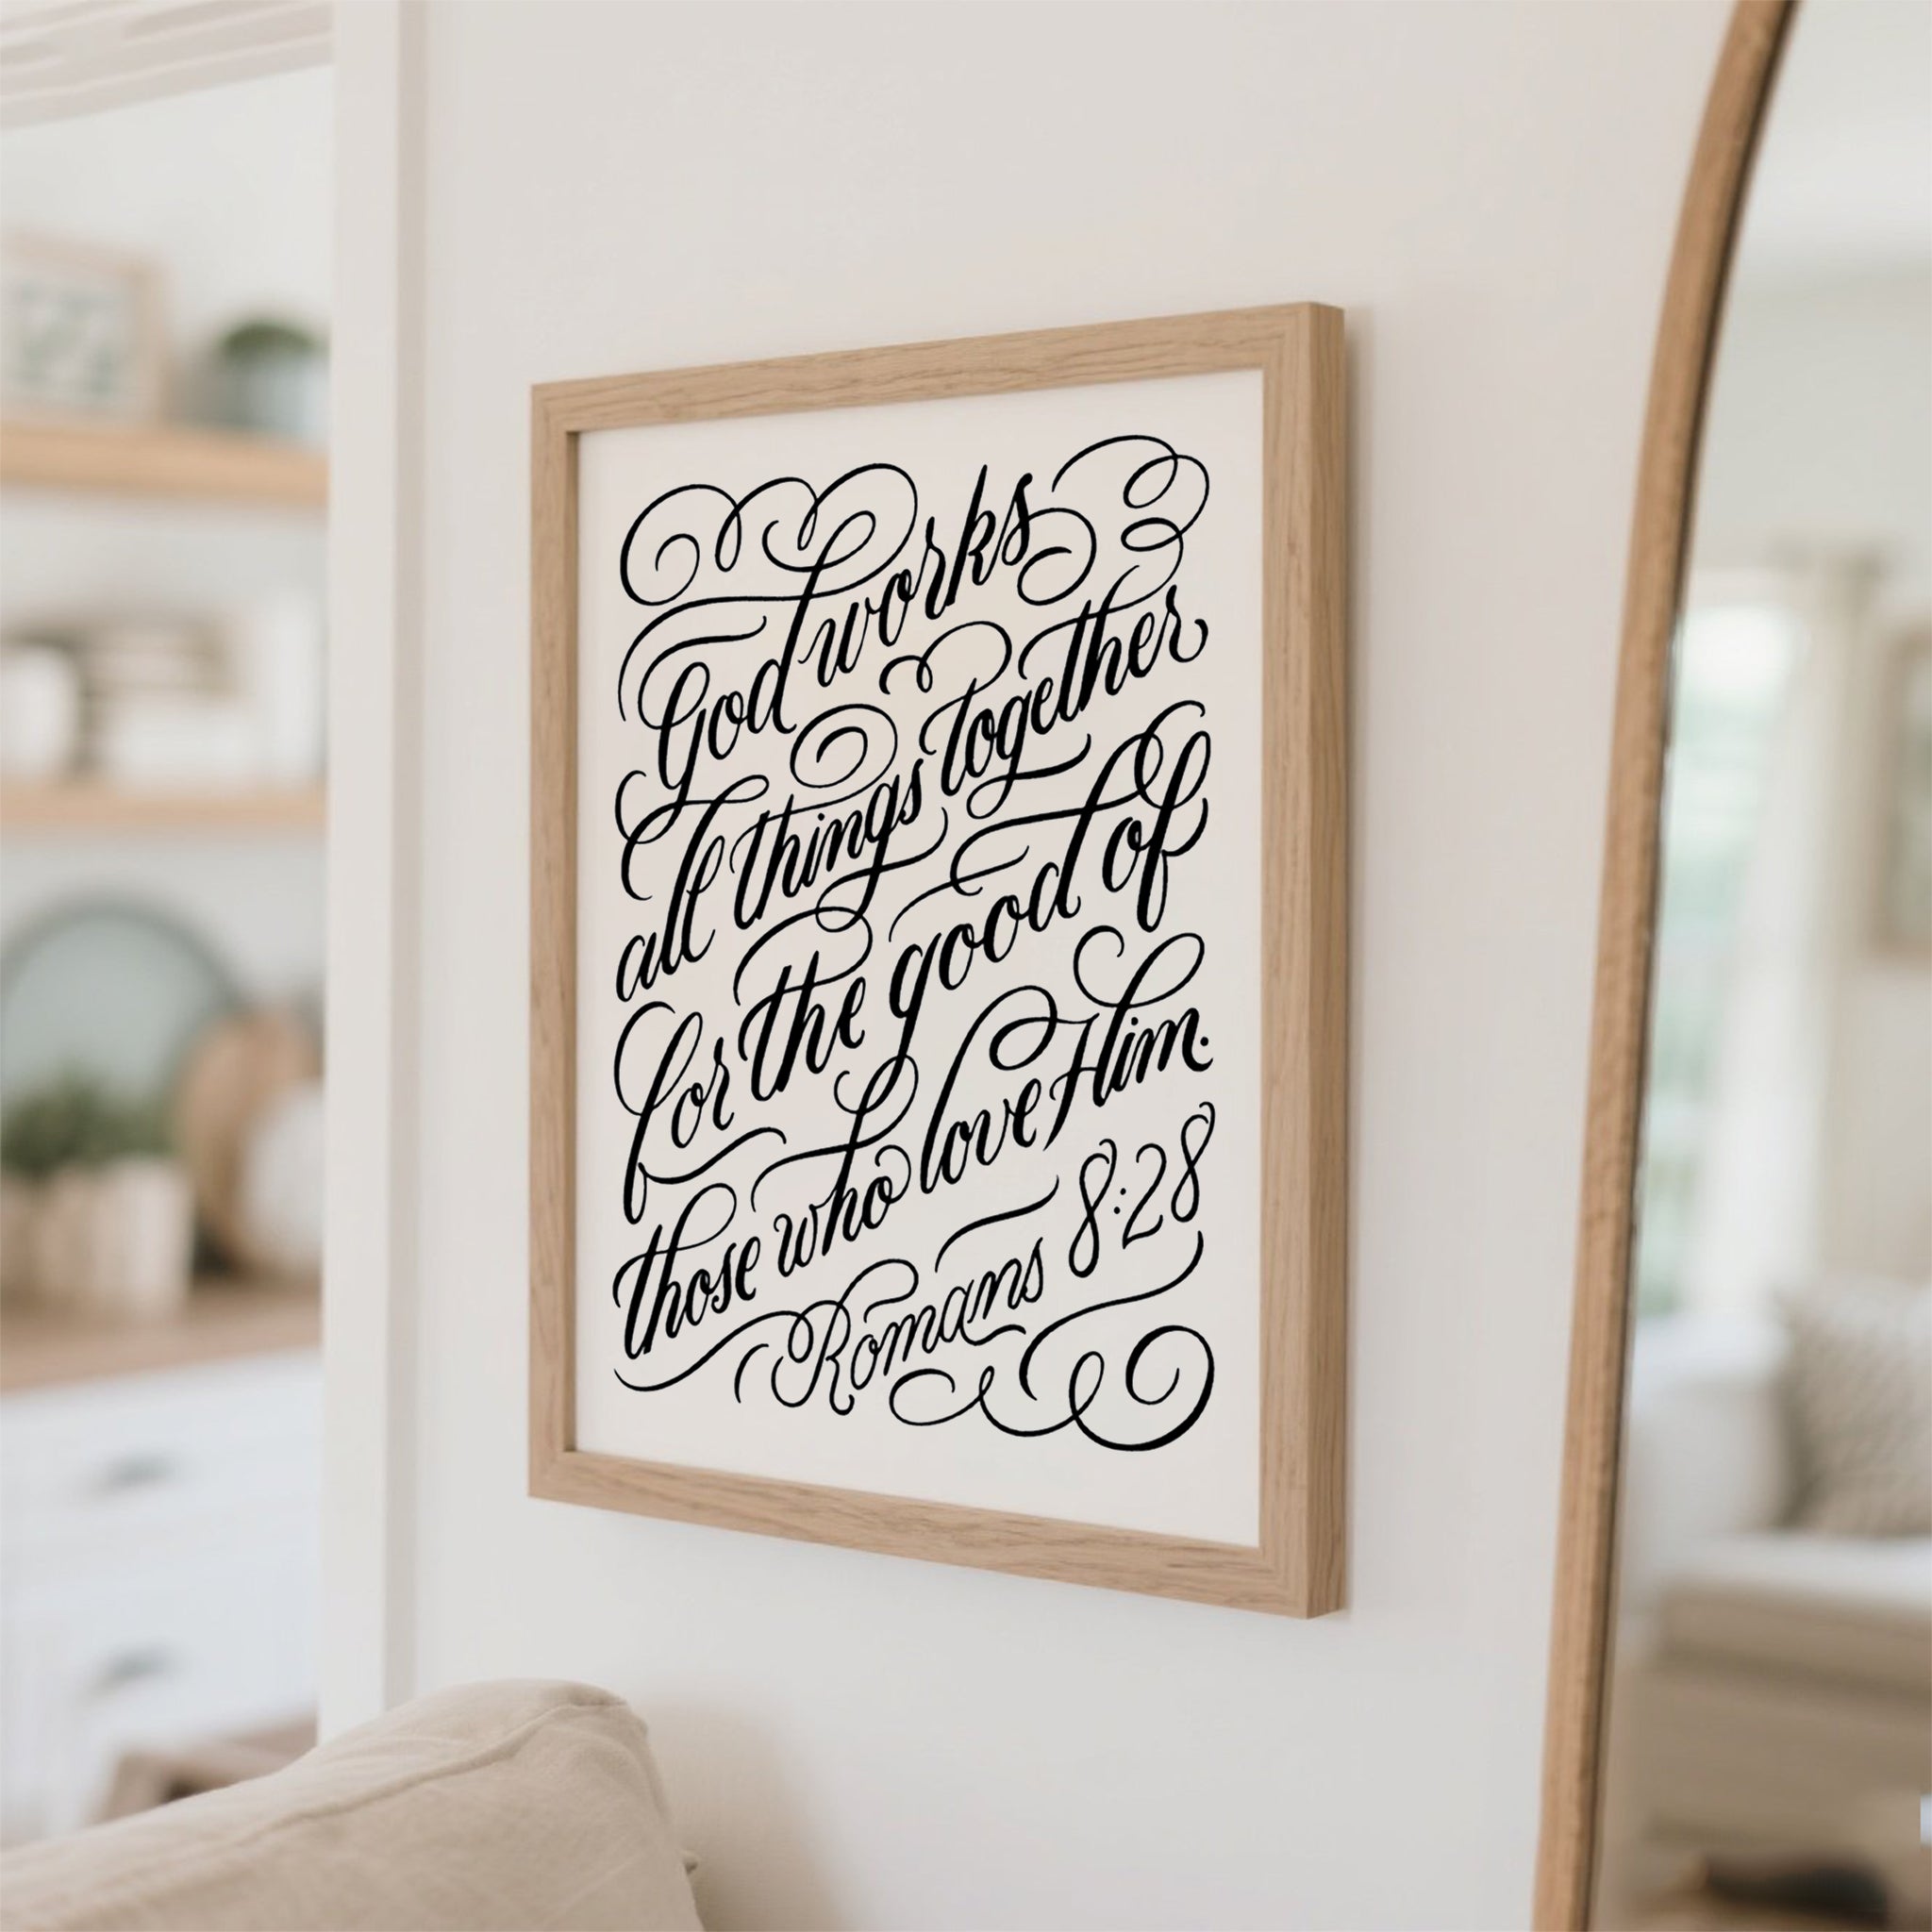 God works
all things together
for the good of
those who love Him.
Romans 8:28